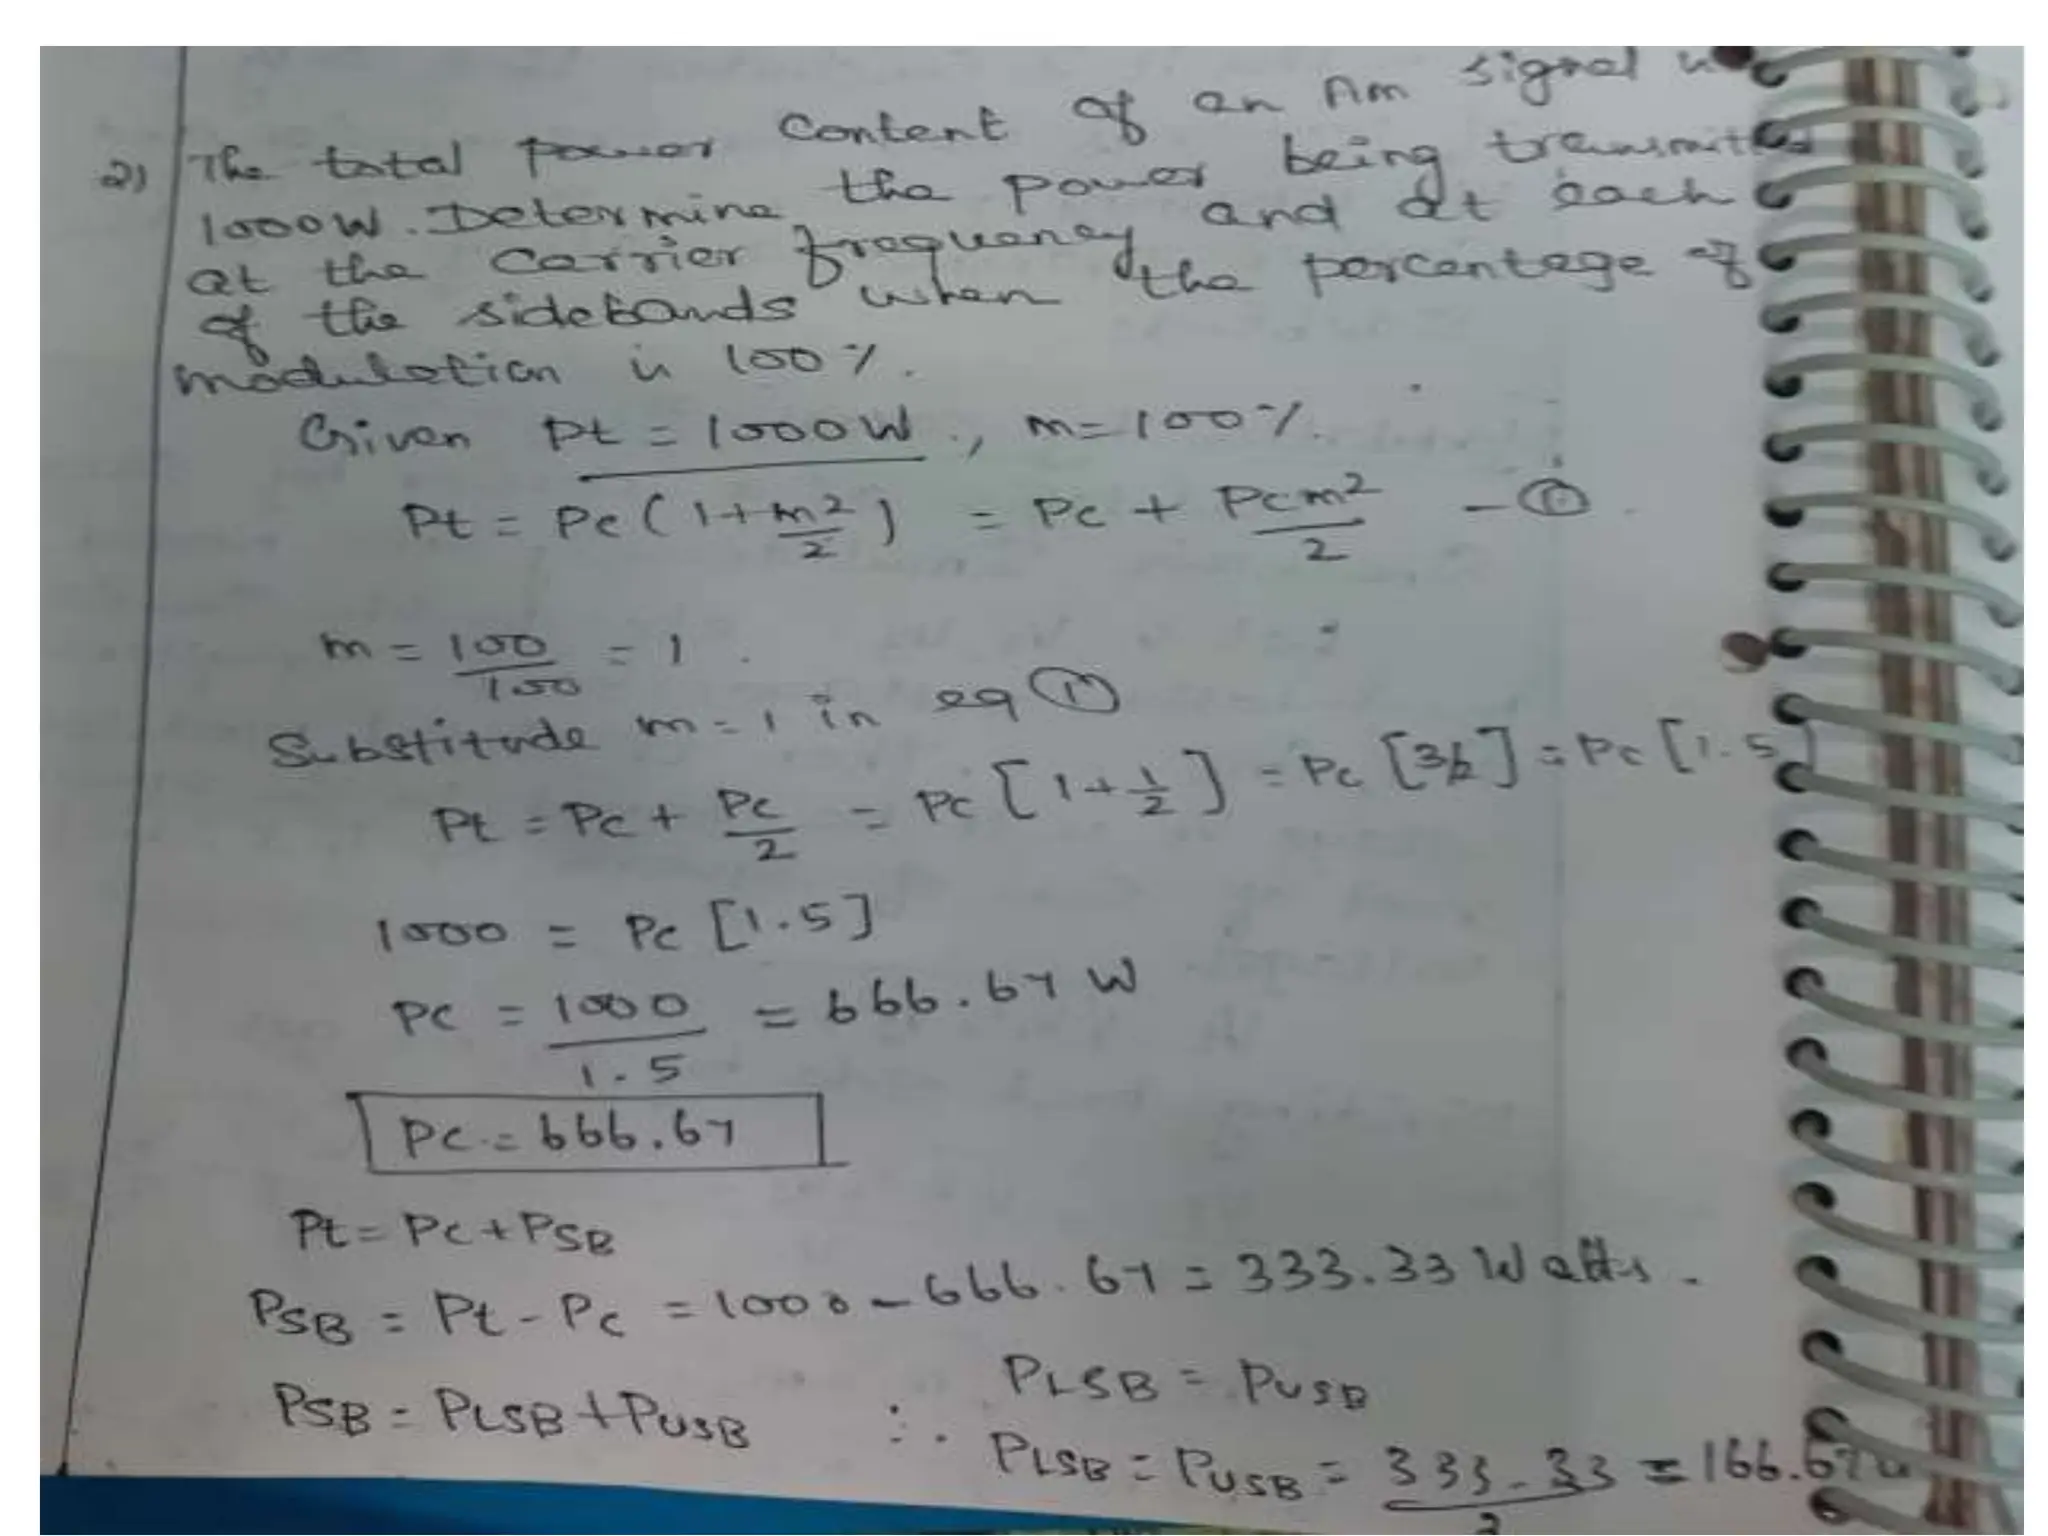 2) The total power content of an Am signal is
1000W. Determine the power being transmitted
at the carrier frequency and at each
of the sidebands when the percentage of
modulation is 100%.
Given Pt = 1000W ., m=100%.
Pt = Pc (1+m²/2) = Pc + Pcm²/2 - ①
m = 100/100 = 1.
Substitude m=1 in eq ①
Pt = Pc + Pc/2 = Pc [1+1/2] = Pc [3/2] = Pc [1.5]
1000 = Pc [1.5]
Pc = 1000/1.5 = 666.67 W
Pc = 666.67
Pt = Pc + PSB
PSB = Pt - Pc = 1000 - 666.67 = 333.33 Watts.
PSB = PLSB + PUSB ∴ PLSB = PUSB
PLSB = PUSB = 333.33/2 = 166.67W